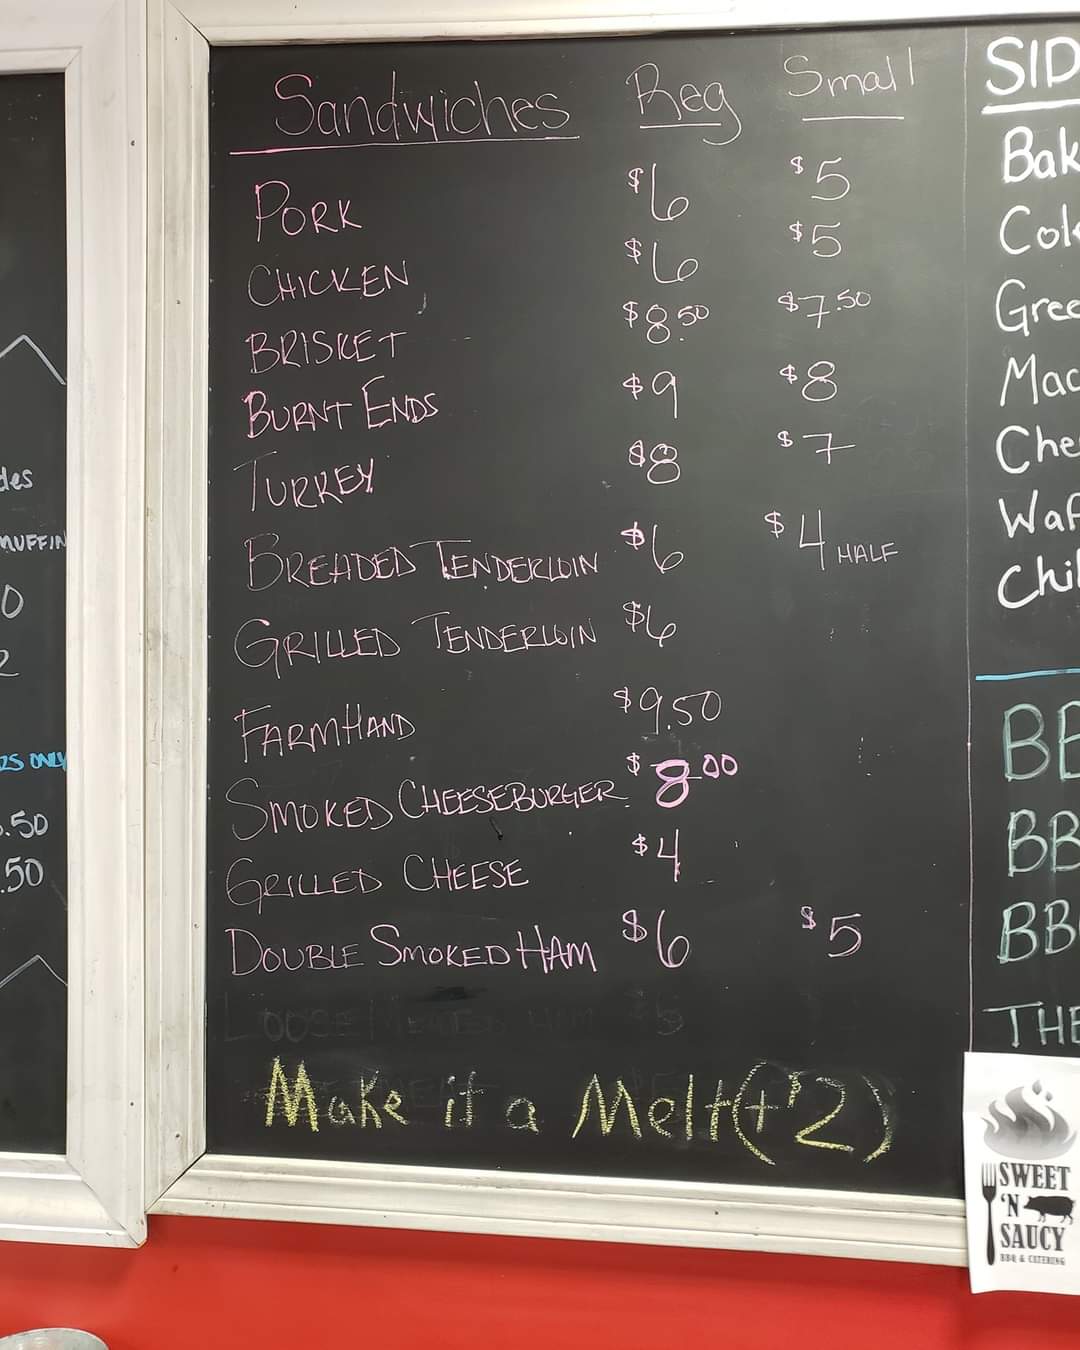 Sandwiches Reg Small
PORK $6 $5
CHICKEN $6 $5
BRISKET $8.50 $7.50
BURNT ENDS $9 $8
TURKEY $8 $7
BREADED TENDERLOIN $6 $4 HALF
GRILLED TENDERLOIN $6
FARMHAND $9.50
SMOKED CHEESEBURGER $8.00
GRILLED CHEESE $4
DOUBLE SMOKED HAM $6 $5
Make it a Melt (+$2)
des
MUFFIN
0
2
RS ONLY
.50
.50
SID
Bak
Cole
Gree
Mac
Che
Waf
Chil
BB
BB
BB
THE
SWEET
'N
SAUCY
BBQ & CATERING